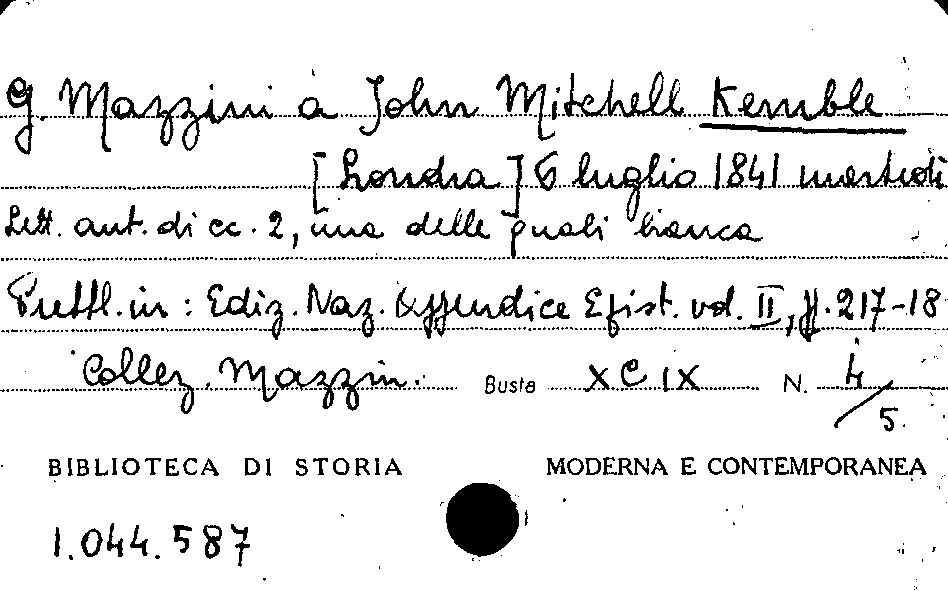 G. Mazzini a John Mitchell Kemble
[Londra] 6 luglio 1841 martedì
Lett. aut. di cc. 2, una delle quali bianca
Pubbl. in: Ediz. Naz. Appendice Epist. vol. II, pp. 217-18
Collez. Mazzin. Busta XCIX N. 4/5.
BIBLIOTECA DI STORIA MODERNA E CONTEMPORANEA
1.044.587